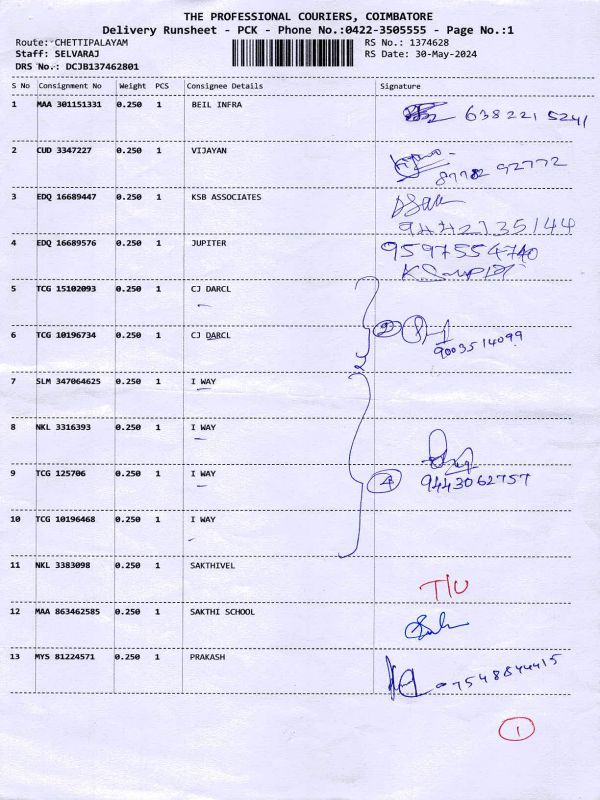 THE PROFESSIONAL COURIERS, COIMBATORE
Delivery Runsheet - PCK - Phone No.:0422-3505555 - Page No.:1
Route: CHETTIPALAYAM RS No.: 1374628
Staff: SELVARAJ RS Date: 30-May-2024
DRS No.: DCJB137462801
S No Consignment No Weight PCS Consignee Details Signature
1 MAA 301151331 0.250 1 BEIL INFRA 638 221 5241
2 CUD 3347227 0.250 1 VIJAYAN
87782 92772
3 EDQ 16689447 0.250 1 KSB ASSOCIATES
9442735144
4 EDQ 16689576 0.250 1 JUPITER 9597554740
5 TCG 15102093 0.250 1 CJ DARCL
6 TCG 10196734 0.250 1 CJ DARCL 2
9003514099
7 SLM 347064625 0.250 1 I WAY
8 NKL 3316393 0.250 1 I WAY
9 TCG 125706 0.250 1 I WAY 4 9443062757
10 TCG 10196468 0.250 1 I WAY
11 NKL 3383098 0.250 1 SAKTHIVEL
T/U
12 MAA 863462585 0.250 1 SAKTHI SCHOOL
13 MYS 81224571 0.250 1 PRAKASH
7548844415
1